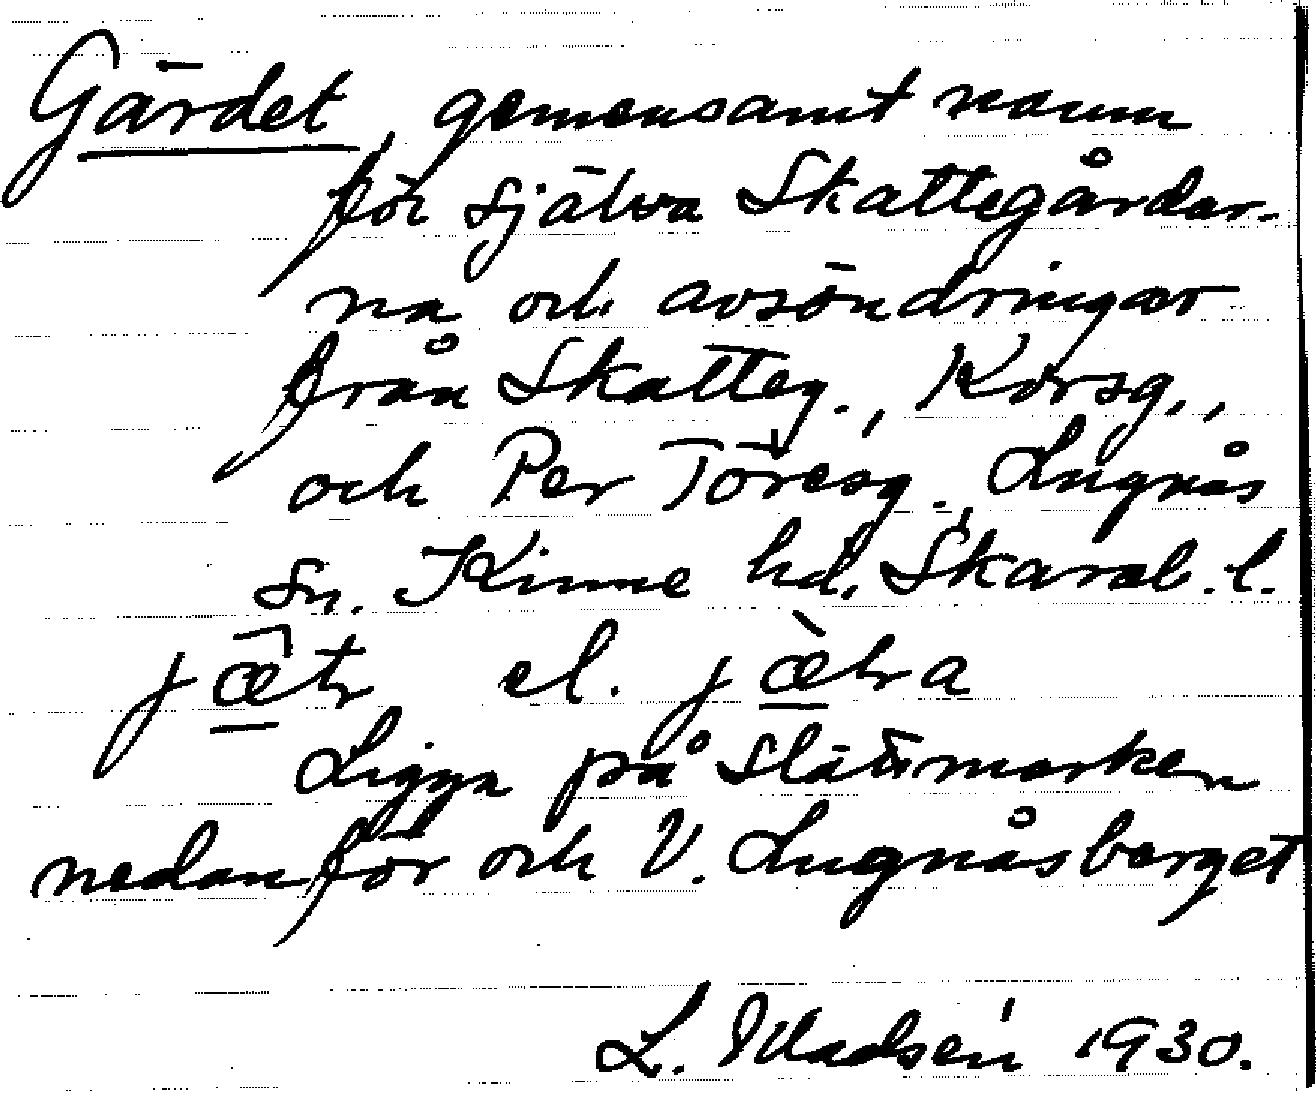 Gärdet, gemensamt namn
för själva Skattegårdar-
na och avsöndringar
från Skatteg., Korsg.,
och Per Töresg., Lugnås
sn. Kinne hd, Skarab. l.
el.
Ligga på slättmarken
nedanför och V. Lugnåsberget
L. Madsén 1930.